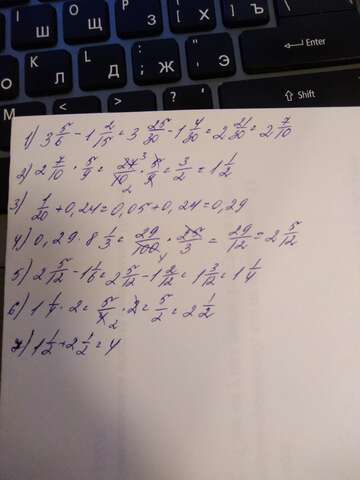 Ш Щ З Х Ъ
Л Д Ж Э Enter
Ь Б Ю Shift
1) 3 5/6 - 1 2/15 = 3 25/30 - 1 4/30 = 2 21/30 = 2 7/10
2) 2 7/10 · 5/9 = 27/10 · 5/9 = 3/2 = 1 1/2
3) 1/20 + 0,24 = 0,05 + 0,24 = 0,29
4) 0,29 · 8 1/3 = 29/100 · 25/3 = 29/12 = 2 5/12
5) 2 5/12 - 1 1/6 = 2 5/12 - 1 2/12 = 1 3/12 = 1 1/4
6) 1 1/4 · 2 = 5/4 · 2 = 5/2 = 2 1/2
7) 1 1/2 + 2 1/2 = 4